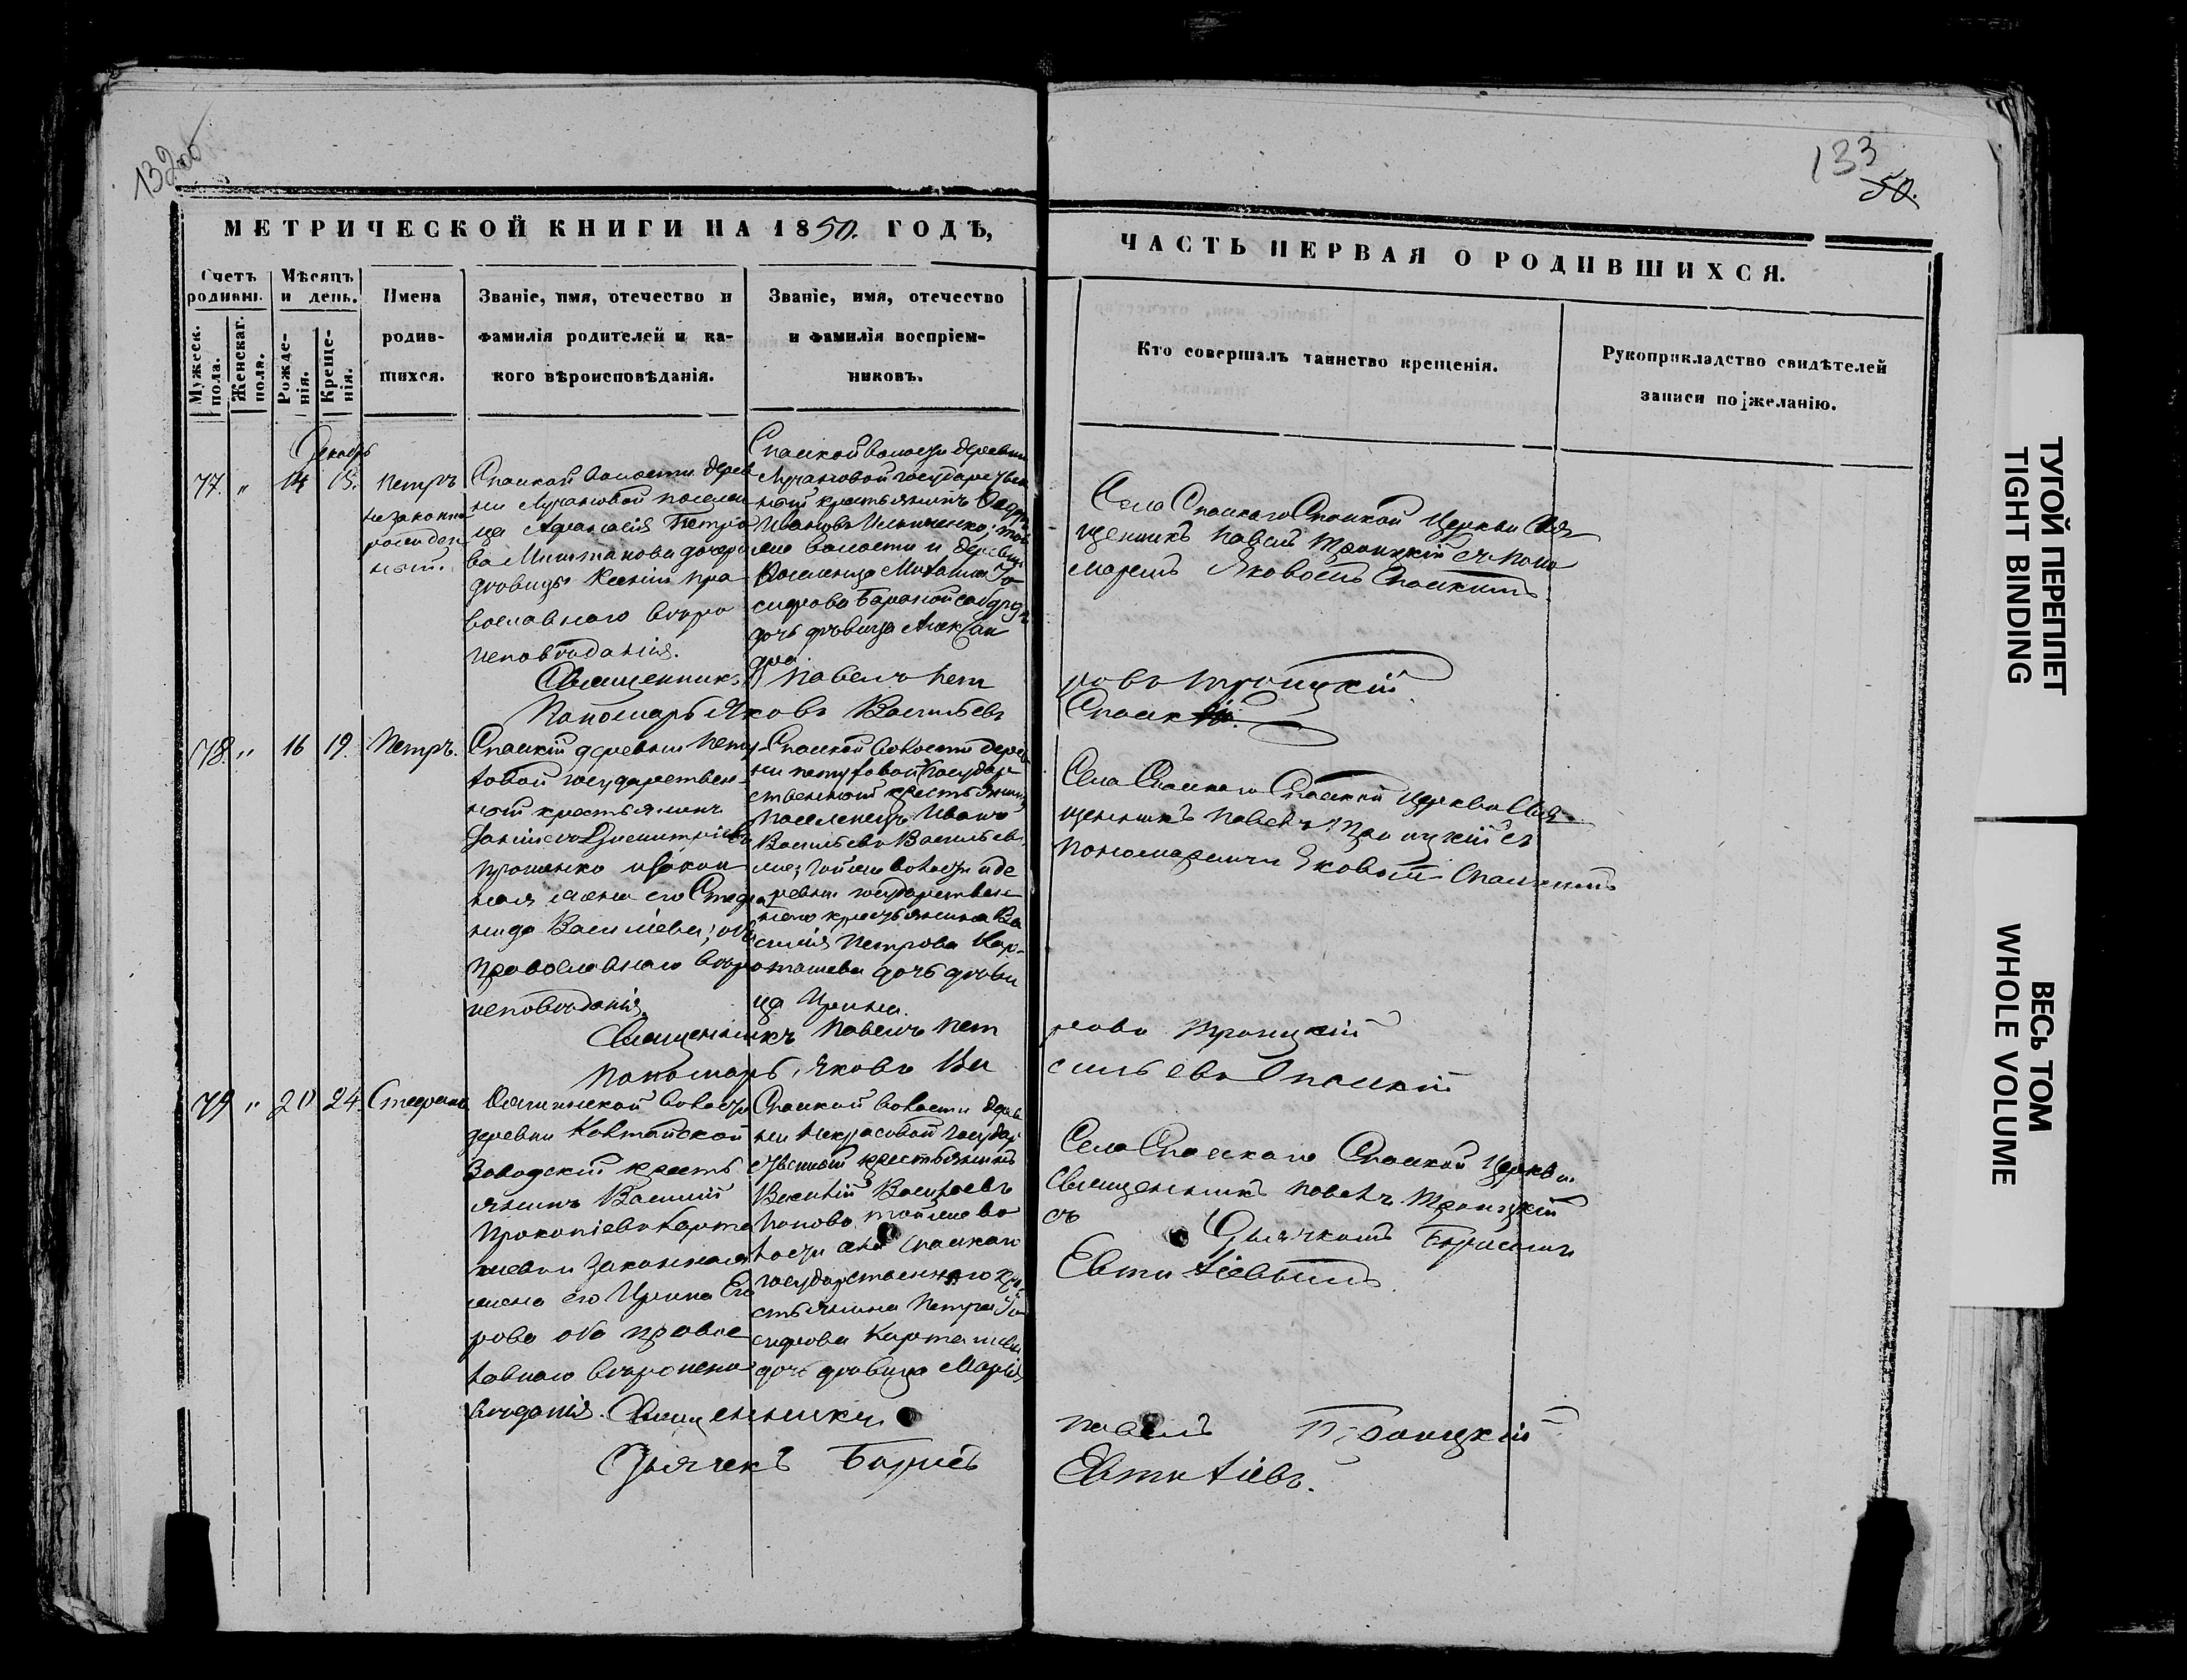 132об
133
50.
МЕТРИЧЕСКОЙ КНИГИ НА 1850. ГОДЪ,
ЧАСТЬ ПЕРВАЯ О РОДИВШИХСЯ.
Счетъ родивш.
Мужеск. пола.
Женскаг. пола.
Мѣсяцъ и день.
Рожде-
нія.
Креще-
нія.
Имена
родив-
шихся.
Званіе, имя, отечество и
фамилія родителей и ка-
кого вѣроисповѣданія.
Званіе, имя, отечество
и фамилія воспріем-
никовъ.
Кто совершалъ таинство крещенія.
Рукоприкладство свидѣтелей
записи по желанію.
Декабрь
77. " 14 15.
Петръ
незаконно
рожден
ный.
Спаской волости дерев
ни Лучановой поселен
ца Афанасія Петро
ва дочери
дѣвицы Ксеніи пра
вославнаго вѣро
исповѣданія.
Спаской волости деревни
Лучановой государствен
ный крестьянинъ
Ивановъ той
же волости и деревни
поселенца Михаила Іо
сифова
дочь дѣвица Алексан
дра.
Села Спаскаго Спаской Церкви Свя
щенникъ Павелъ Троицкій съ Поно
маремъ Яковомъ Спаскимъ.
Священникъ Павелъ Пет
ровъ Троицкій
Пономарь Яковъ Васильевъ
Спаскій.
78. " 16 19.
Петръ.
Спаской деревни Пету
ховой государствен
ный крестьянинъ
Дмитріевъ
и закон
ная жена его Степа
нида Васильева, оба
православнаго вѣро
исповѣданія.
Спаской волости дерев
ни Петуховой государ
ственный крестьянинъ
поселенецъ Иванъ
Васильевъ Васильевъ
той же волости и де
ревни государствен
наго крестьянина Ва
силія Петрова Кар
ташева дочь дѣви
ца Ирина.
Села Спаскаго Спаской Церкви Свя
щенникъ Павелъ Троицкій съ
Пономаремъ Яковомъ Спаскимъ
Священникъ Павелъ Пет
ровъ Троицкій
Пономарь Яковъ Ва
сильевъ Спаскій
79 " 20 24.
Стефанъ
волости
деревни
Заводскій кресть
янинъ Василій
Прокопіевъ Карта
шевъ и законная
жена его Ирина Его
рова оба правос
лавнаго вѣроиспо
вѣданія.
Спаской волости дерев
ни Некрасовой государ
ственный крестьянинъ
Василій Васильевъ
Поповъ, той же во
лости села Спаскаго
государственнаго кре
стьянина Петра Іо
сифова Карташева
дочь дѣвица Марія
Села Спаскаго Спаской Церкви
Священникъ Павелъ Троицкій
съ Дьячкомъ Борисомъ
Евтихіевымъ
Священникъ
Павелъ Троицкій
Дьячекъ Борисъ
Евтихіевъ.
ТУГОЙ ПЕРЕПЛЕТ
TIGHT BINDING
ВЕСЬ ТОМ
WHOLE VOLUME